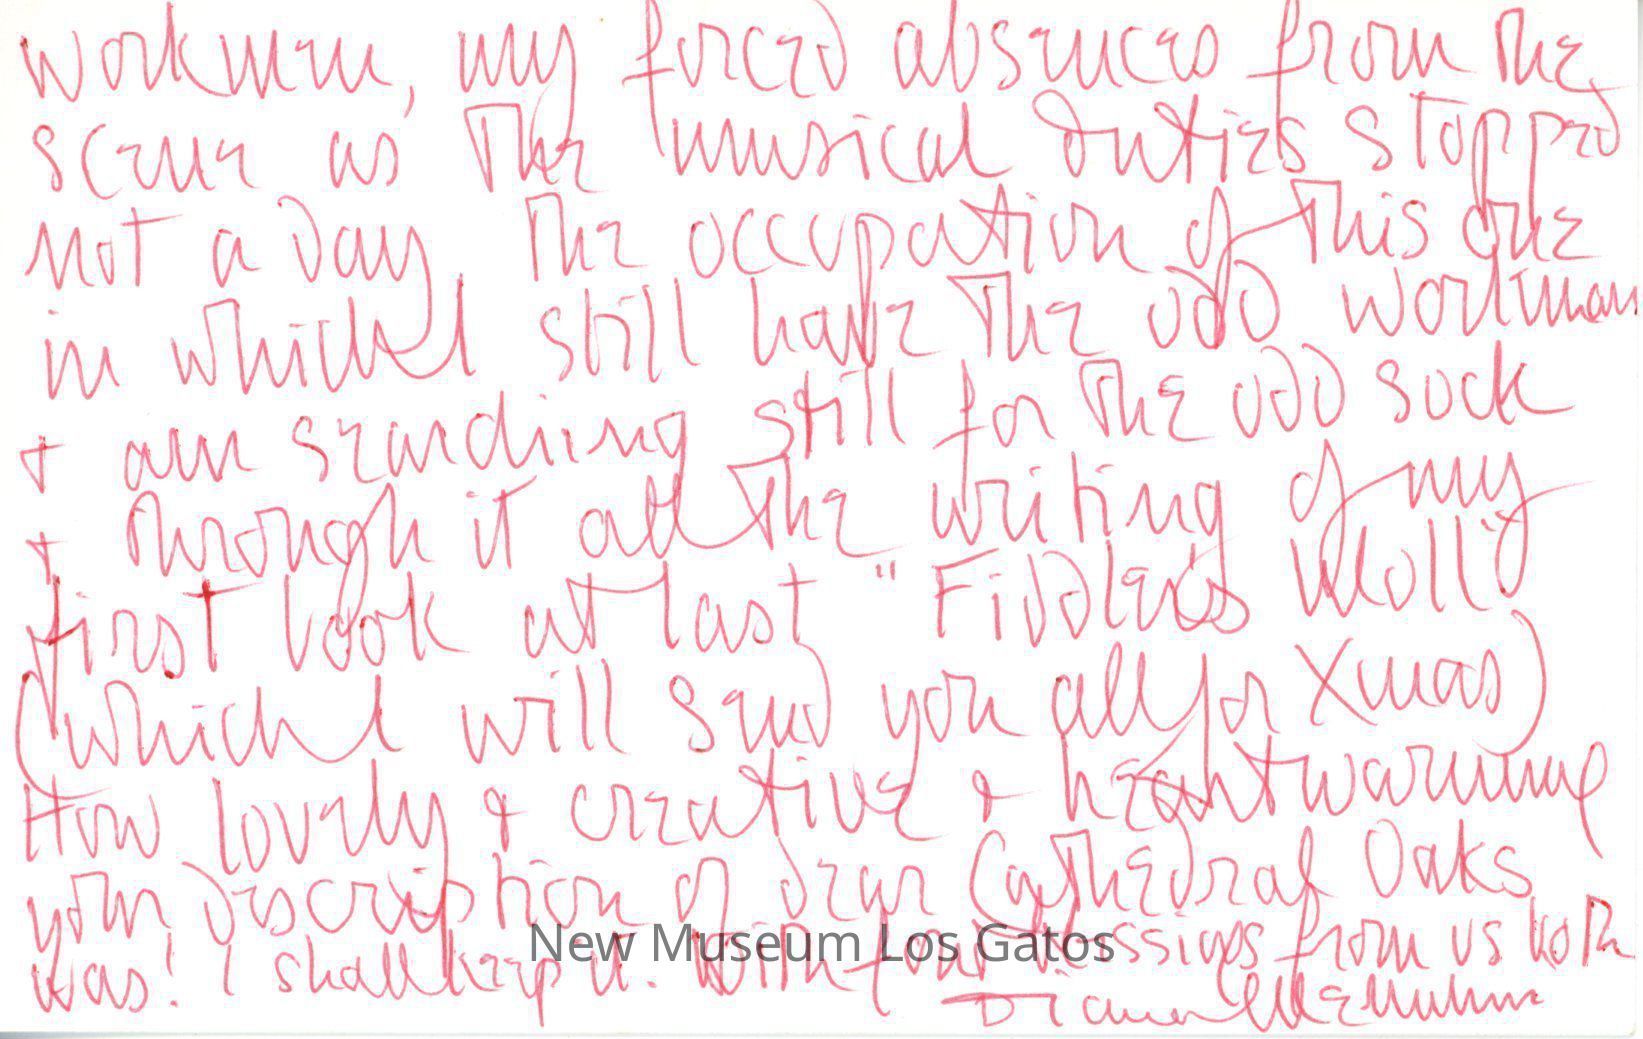 workmen, my forced absences from the
scene as the musical duties stopped
not a day, the occupation of this one
in which I still have the odd workman
+ am searching still for the odd sock
+ through it all the writing of my
first book at last "Fiddler's Moll"
(which I will send you all for Xmas)
How lovely & creative & heartwarming
your description of dear Cathedral Oaks
was! I shall keep it. With fond blessings from us both
Diana Menuhin
New Museum Los Gatos